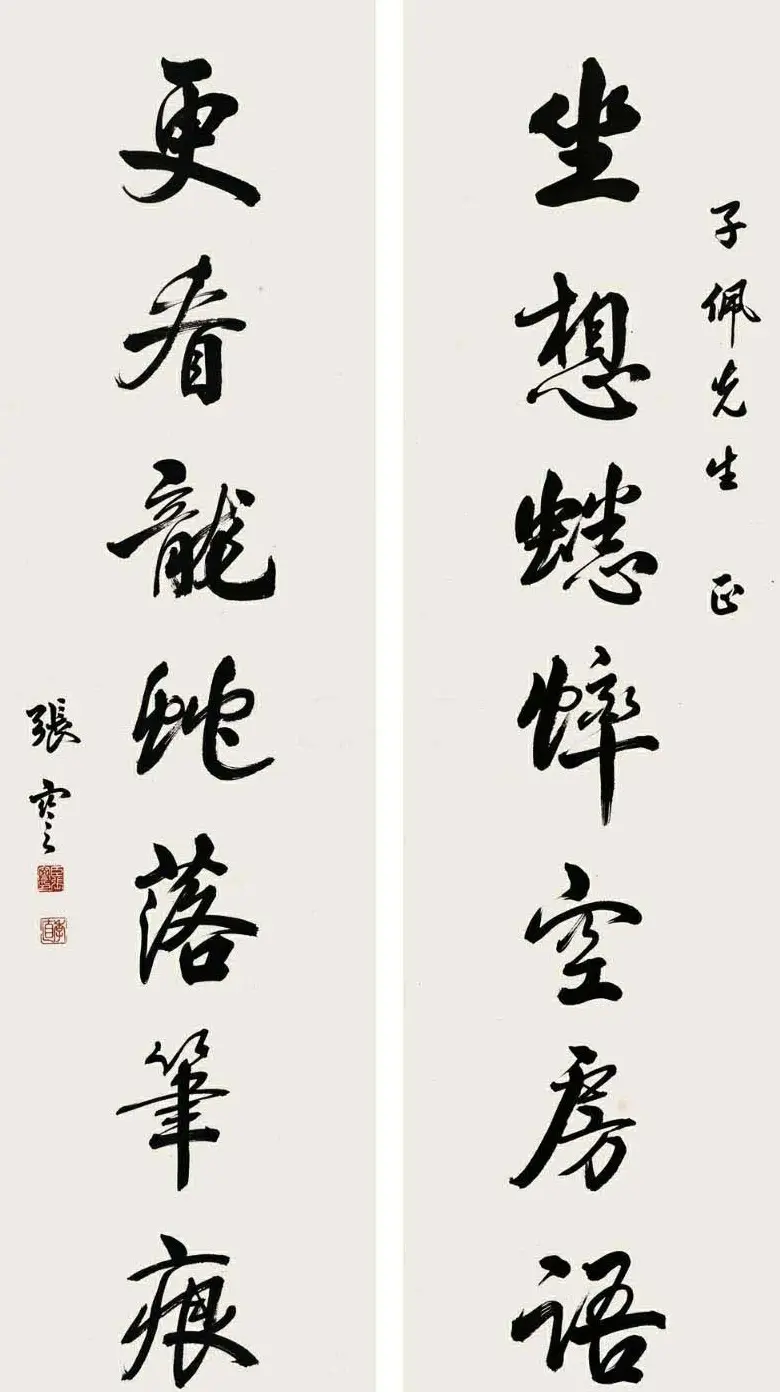 子佩先生 正
坐想蟋蟀空房語
更看龍蛇落筆痕
張謇